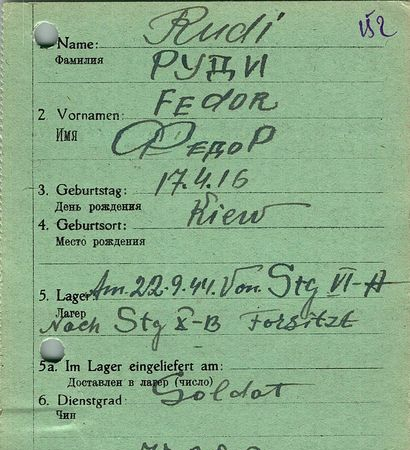 152
Rudi
1 Name:
Фамилия
РУДИ
FEdOR
2 Vornamen:
Имя
ФЕДОР
3. Geburtstag: 17.4.16
День рождения
4. Geburtsort: Kiew
Место рождения
Am. 22.9.44. Von Stg VI-A
5. Lager
Лагер
Nach Stg X-B Forsitzt
5a. Im Lager eingeliefert am:
Доставлен в лагер (число)
6. Dienstgrad: Soldat
Чин